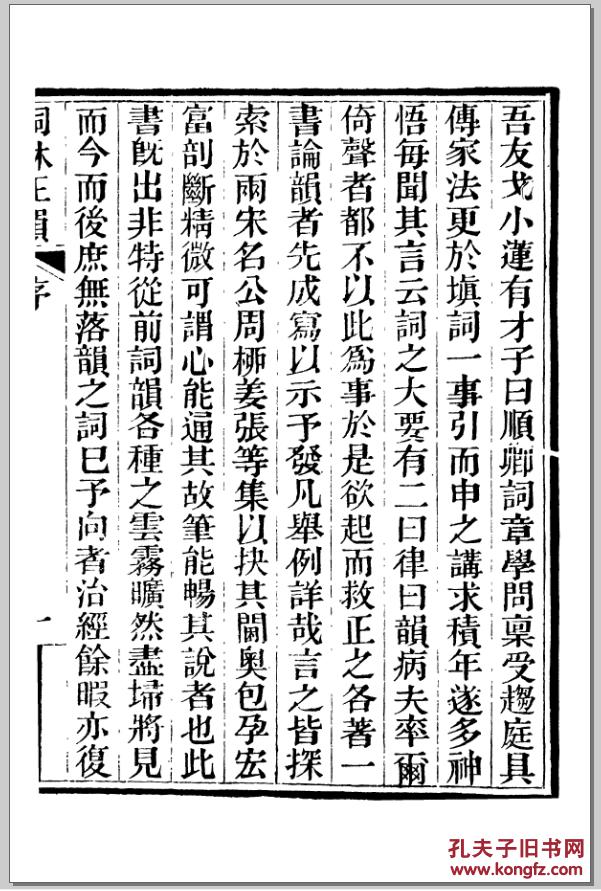 吾友戈小蓮有才子曰順卿詞章學問稟受趨庭具
傳家法更於塡詞一事引而申之講求積年遂多神
悟每聞其言云詞之大要有二曰律曰韻病夫率爾
倚聲者都不以此爲事於是欲起而救正之各著一
書論韻者先成寫以示予發凡舉例詳哉言之皆探
索於兩宋名公周栁姜張等集以抉其閫奧包孕宏
富剖斷精微可謂心能通其故筆能暢其說者也此
書旣出非特從前詞韻各種之雲霧曠然盡埽將見
而今而後庶無落韻之詞已予向者治經餘暇亦復
詞林正韻 序 一
孔夫子旧书网
www.kongfz.com